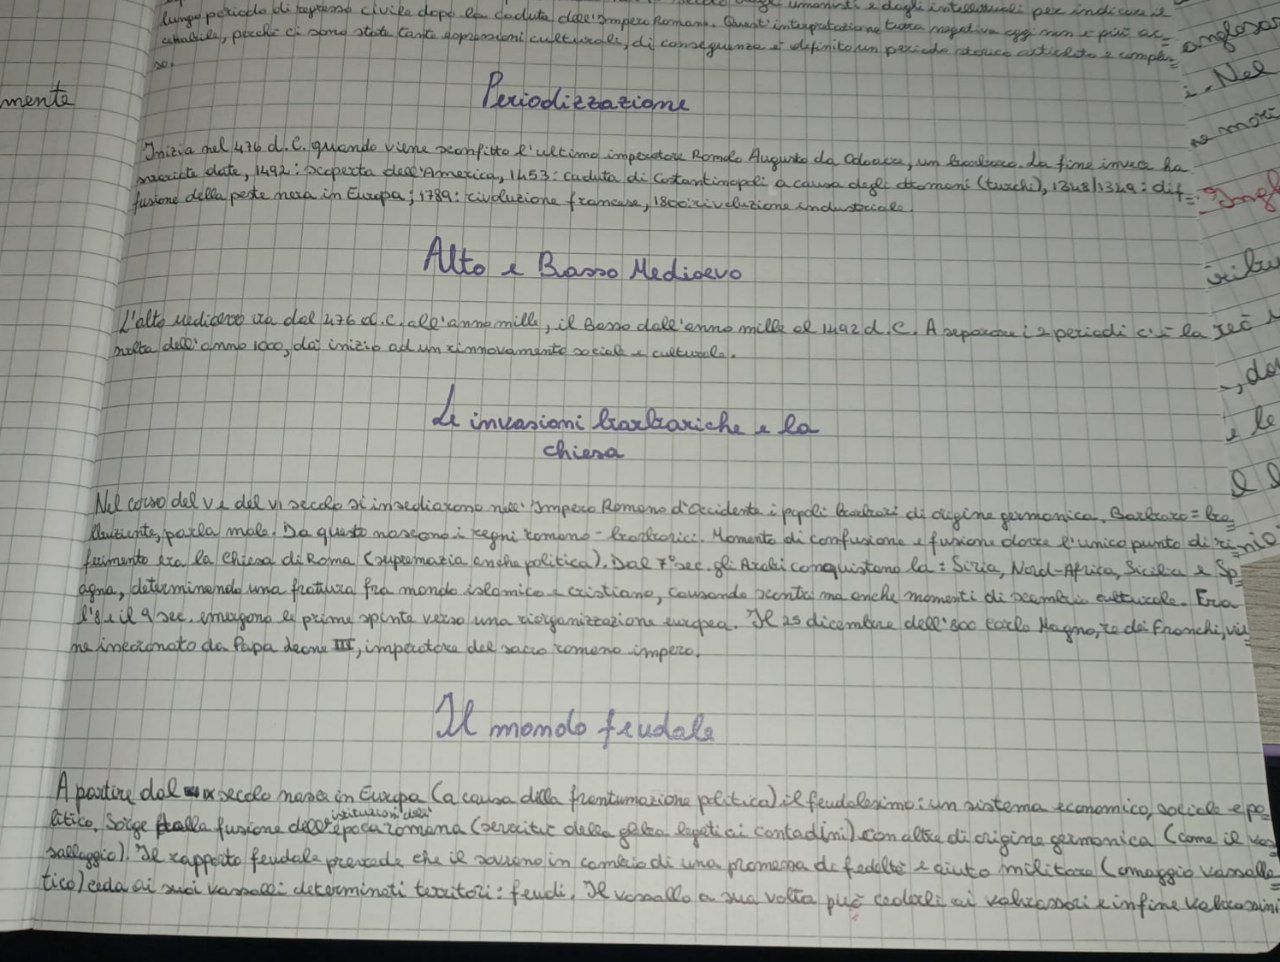 lungo periodo di regresso civile dopo la caduta dell'Impero Romano. Quest'interpretazione troppo negativa oggi non è più ac=
cettabile, perché ci sono state tante espressioni culturali, di conseguenza si definito un periodo storico articolato e comples=
so.
mente
Periodizzazione
Inizia nel 476 d.C. quando viene sconfitto l'ultimo imperatore Romolo Augusto da Odoacre, un barbaro. La fine invece ha
svariate date, 1492: scoperta dell'America, 1453: caduta di Costantinopoli a causa degli ottomani (turchi), 1348/1349: dif=
fusione della peste nera in Europa; 1789: rivoluzione francese, 1800: rivoluzione industriale.
Alto e Basso Medioevo
L'alto Medioevo va dal 476 d.C. all'anno mille, il Basso dall'anno mille al 1492 d.C. A separare i 2 periodi c'è la
svolta dell'anno 1000, dai inizio ad un rinnovamento sociale e culturale.
Le invasioni barbariche e la
chiesa
Nel corso del V e del VI secolo si insediarono nell'Impero Romano d'Occidente i popoli barbari di origine germanica. Barbaro = bal
buziente, parla male. Da questo nascono i regni romano-barbarici. Momento di confusione e fusione dove l'unico punto di ri=
ferimento era la Chiesa di Roma (supremazia anche politica). Dal 7° sec. gli Arabi conquistano la: Siria, Nord-Africa, Sicilia e Sp=
agna, determinando una frattura fra mondo islamico e cristiano, causando scontri ma anche momenti di scambio culturale. Fra
l'8 e il 9 sec. emergono le prime spinte verso una riorganizzazione europea. Il 25 dicembre dell'800 Carlo Magno, re dei Franchi, vie
ne incoronato da Papa Leone III, imperatore del sacro romano impero.
Il mondo feudale
A partire dal IX secolo nasce in Europa (a causa della frantumazione politica) il feudalesimo: un sistema economico, sociale e po=
litico. Sorge dalla fusione delle istituzioni dell'epoca romana (servitù della gleba legati ai contadini) con altre di origine germanica (come il vas
sallaggio). Il rapporto feudale prevede che il sovrano in cambio di una promessa di fedeltà e aiuto militare (omaggio vassalla=
tico) ceda ai suoi vassalli determinati territori: feudi. Il vassallo a sua volta può cederli ai valvassori e infine valvassini
anglosas
. Nel
Ingl